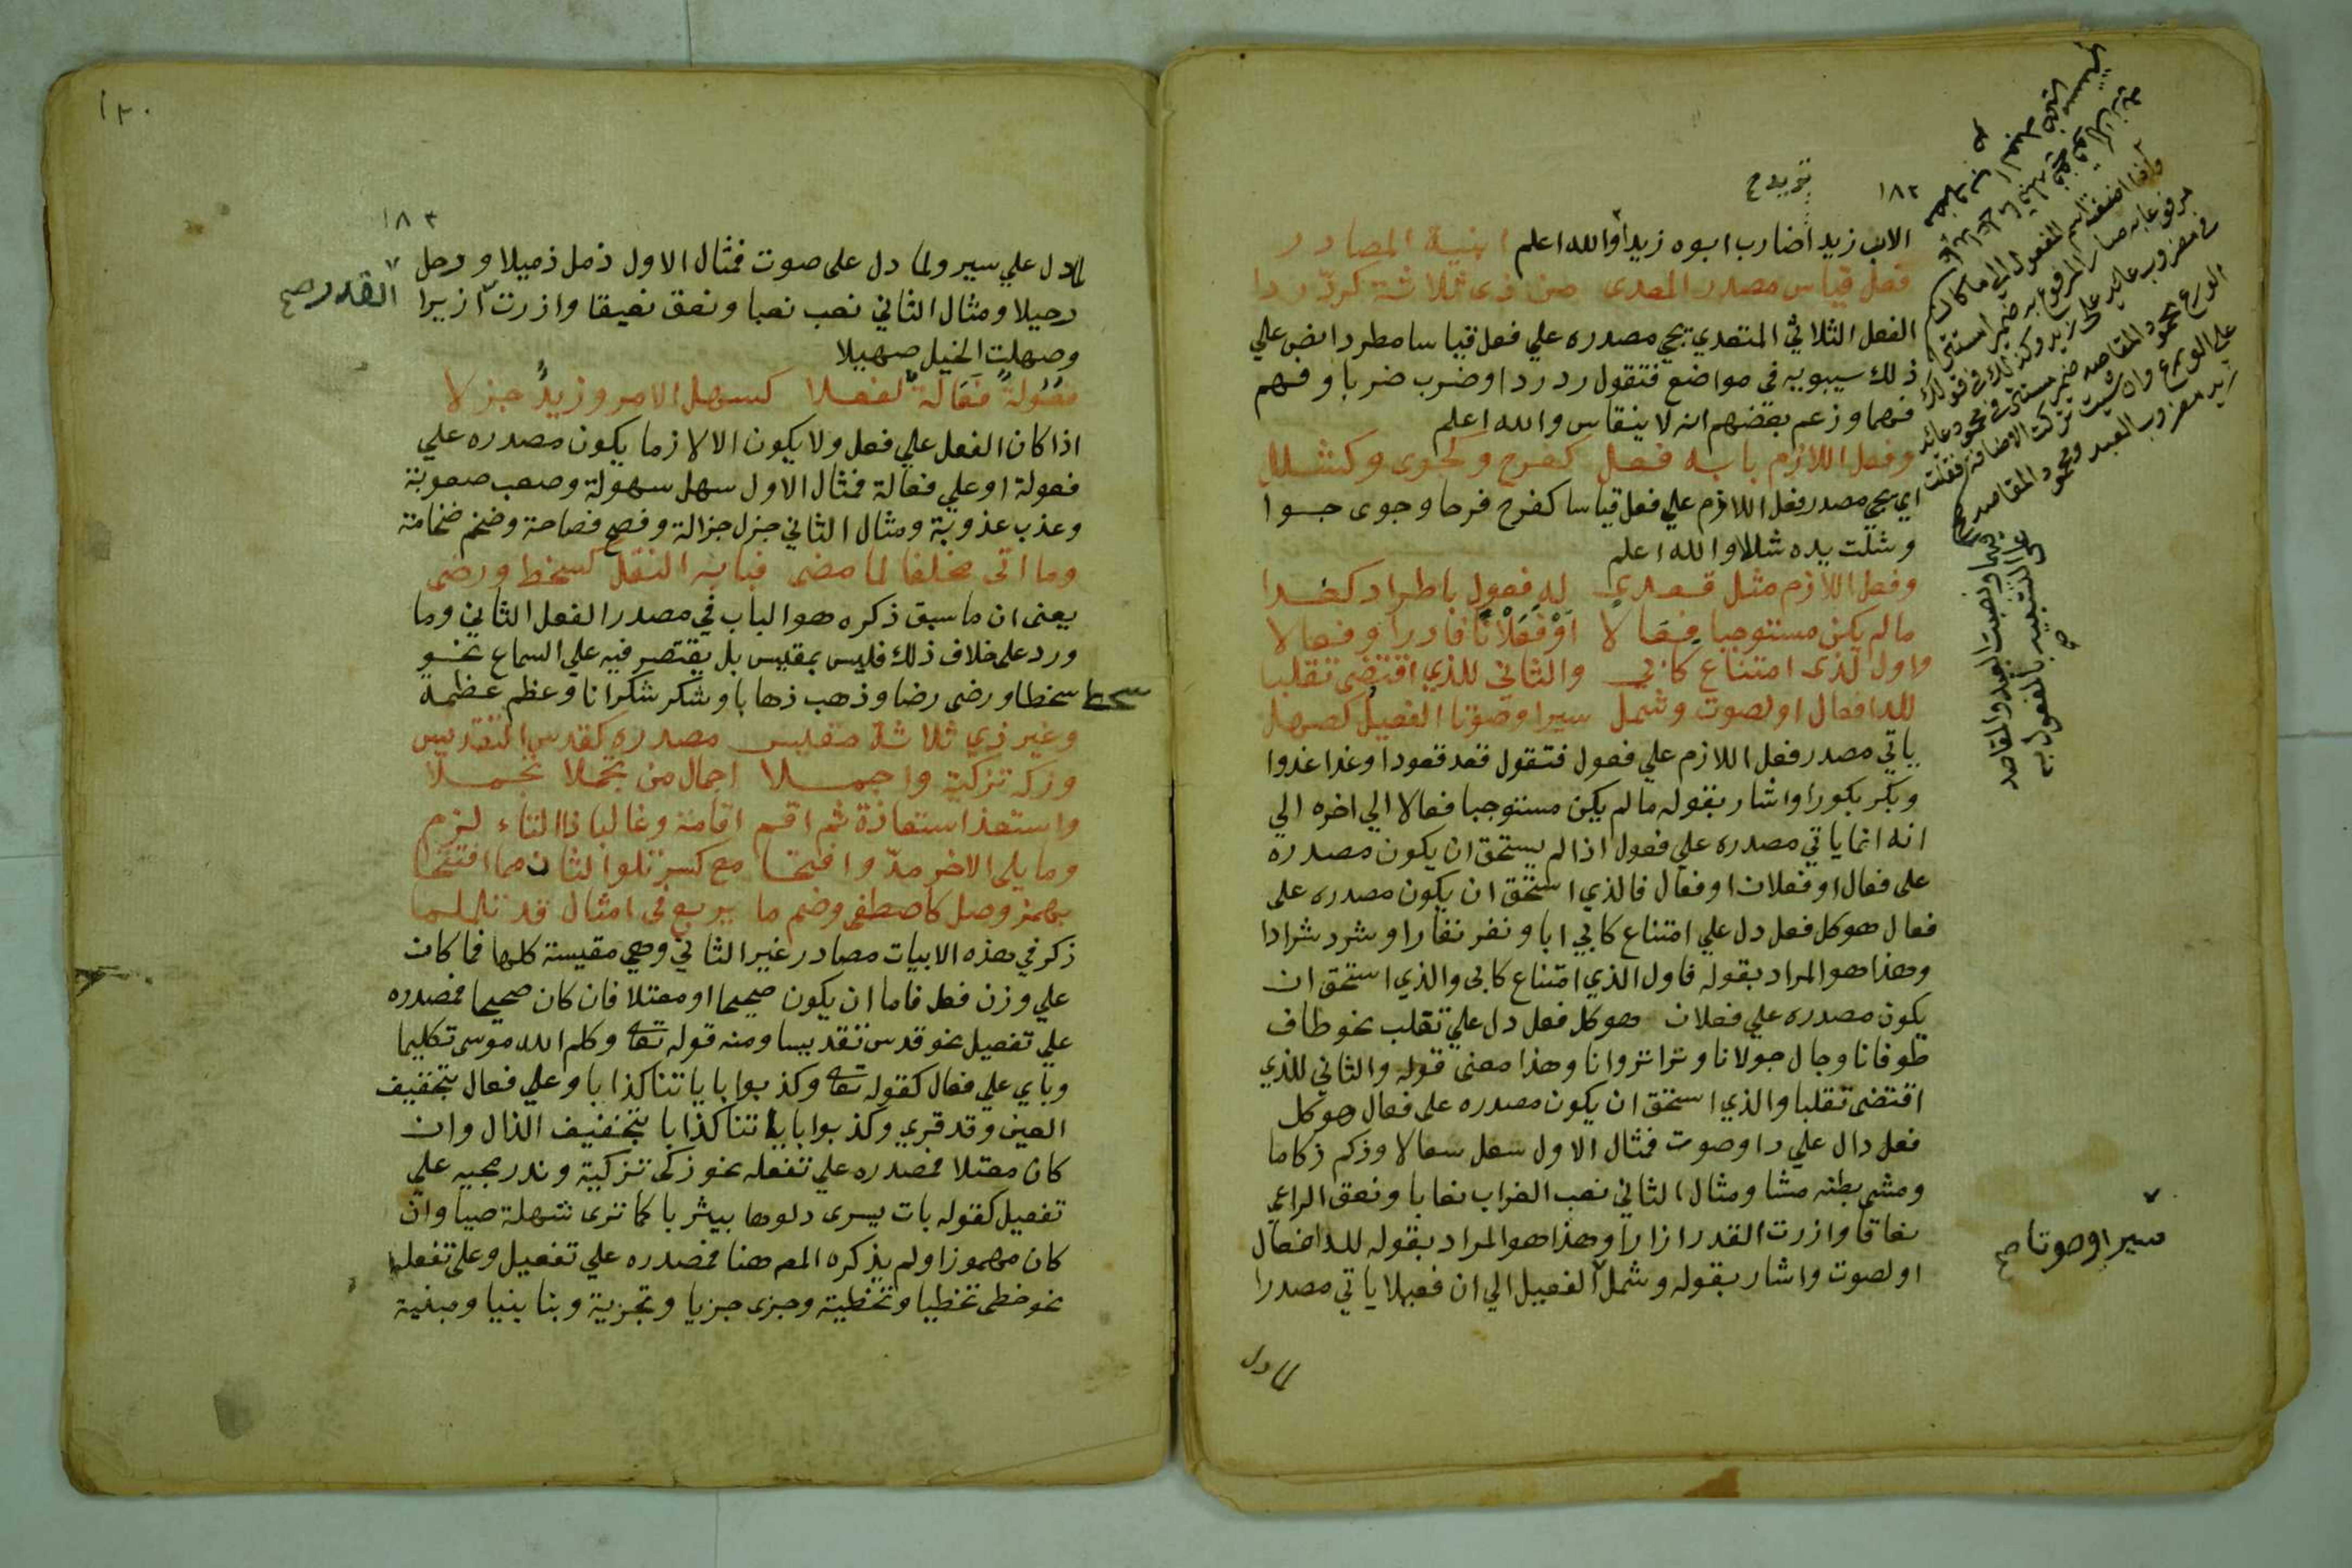 ١٨٢
تريد ح
الاب زيدا ضارب ابوه زيدا والله اعلم ابنية المصادر
فعل قياس مصدر المعدى من ذى ثلاثة كردّ ردا
الفعل الثلاثي المتعدي يجي مصدره علي فعل قياسا مطردا نص علي
ذلك سيبويه في مواضع فتقول رد ردا وضرب ضربا وفهم
فهما وزعم بعضهم انه لا ينقاس والله اعلم
وفعل اللازم بابه فعل كفرح وكجوى وكشلل
اي يجي مصدر فعل اللازم علي فعل قياسا كفرح فرحا وجوى جوا
وشلت يده شللا والله اعلم
وفعل اللازم مثل قعدي له فعول باطراد كغدا
ما لم يكن مستوجبا فعالا اوْ فعَلانًا فادر او فعالا
واول لذى امتناع كابي والثاني للذي اقتضى تقلبا
للدا فعال او لصوت وشمل سيرا وصوتا الفعيل كصهل
ياتي مصدر فعل اللازم علي فعول فتقول قعد قعودا وغدا غدوا
وبكر بكورا واشار بقوله ما لم يكن مستوجبا فعالا الي اخره الي
انه انما ياتي مصدره علي فعول اذا لم يستحق ان يكون مصدره
على فعال او فعلان او فعال فالذي استحق ان يكون مصدره على
فعال هو كل فعل دل علي امتناع كابي ابا ونفر نفارا وشرد شرادا
وهذا هو المراد بقوله فاول الذي امتناع كابى والذي استحق ان
يكون مصدره علي فعلان هو كل فعل دل علي تقلب نحو طاف
طوفانا وجال جولانا ونزا نزوانا وهذا معنى قوله والثاني للذي
اقتضى تقلبا والذي استحق ان يكون مصدره على فعال هو كل
فعل دال علي دا او صوت فمثال الاول سعل سعالا وزكم زكاما
ومشى بطنه مشا ومثال الثاني نعب الغراب نعابا ونعق الراعي
نعاقا وازرت القدر ازارا وهذا هو المراد بقوله للدا فعال
او لصوت واشار بقوله وشمل الفعيل الي ان فعيلا ياتي مصدرا
لما دل
واذا اضفت اسم المفعول الى ما كان
مرفوعا به صار المرفوع به ضمير استتر
في مضروب عايد على زيد وكذلك في قولك
الورع محمود المقاصد ضمير مستتر في محمود عايد
على الورع وان شيت تركت الاضافة فقلت
زيد مضروب العبد ومحمود المقاصد
فيهما ونصبت العبد والمقاصد
على التشبيه بالمفعول به
صح
سيرا وصوتا صح
١٢٠
١٨٣
لما دل علي سير ولما دل على صوت فمثال الاول ذمل ذميلا ورحل
رحيلا ومثال الثاني نعب نعبا ونعق نعيقا وازرت ازيرا
القدر صح
وصهلت الخيل صهيلا
فعُولةٌ فَعَالَةٌ لفعلا كسهل الامر وزيدٌ جزلا
اذا كان الفعل علي فعل ولا يكون الا لازما يكون مصدره علي
فعولة او علي فعالة فمثال الاول سهل سهولة وصعب صعوبة
وعذب عذوبة ومثال الثاني جزل جزالة وفصح فصاحة وضخم ضخامة
وما اتى مخلفا لما مضى فبابه النقل كسخط ورضى
يعنى ان ما سبق ذكره هو الباب في مصدر الفعل الثاني وما
ورد على خلاف ذلك فليس بمقيس بل يقتصر فيه علي السماع نحو
سخط سخطا ورضى رضا وذهب ذهابا وشكر شكرانا وعظم عظمة
وغير ذي ثلاثة مقيس مصدره كقدس التقديس
وزكه تزكية واجملا اجمال من تجملا تجملا
واستعذ استعاذة ثم اقم اقامة وغالبا ذا التاء لزم
وما يلي الاخر مدّ وافتحا مع كسر تلو الثان مما افتتحا
بهمز وصل كاصطفى وضم ما يربع في امثال قد تلملما
ذكر في هذه الابيات مصادر غير الثاني وهي مقيسة كلها فما كان
علي وزن فعل فاما ان يكون صحيحا او معتلا فان كان صحيحا فمصدره
علي تفعيل نحو قدس تقديسا ومنه قوله تعا وكلم الله موسى تكليما
وياي علي فعال كقوله تعا وكذبوا باياتنا كذابا وعلي فعال بتخفيف
العين وقد قري وكذبوا باياتنا كذابا بتخفيف الذال وان
كان معتلا فمصدره علي تفعله نحو زكى تزكية وندر مجيه علي
تفعيل كقوله بات يسرى دلوها بيثربا كما تنزى شهلة صبيا وان
كان مهموزا ولم يذكره المص هنا فمصدره علي تفعيل وعلى تفعله
نحو خطى تخطيا وتخطية وجزى جزيا وتجزية وبنا بنيا ومبنية